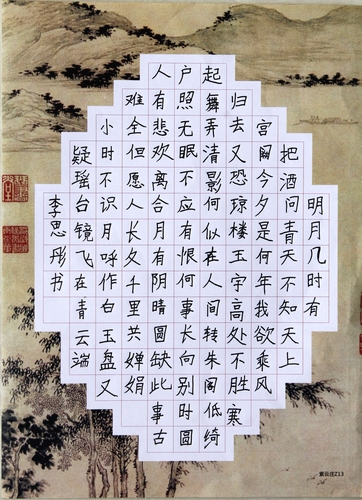 明月几时有
把酒问青天不知天上
宫阙今夕是何年我欲乘风
归去又恐琼楼玉宇高处不胜寒
起舞弄清影何似在人间转朱阁低绮
户照无眠不应有恨何事长向别时圆
人有悲欢离合月有阴晴圆缺此事古
难全但愿人长久千里共婵娟
小时不识月呼作白玉盘又
疑瑶台镜飞在青云端
李思彤书
紫云庄Z13